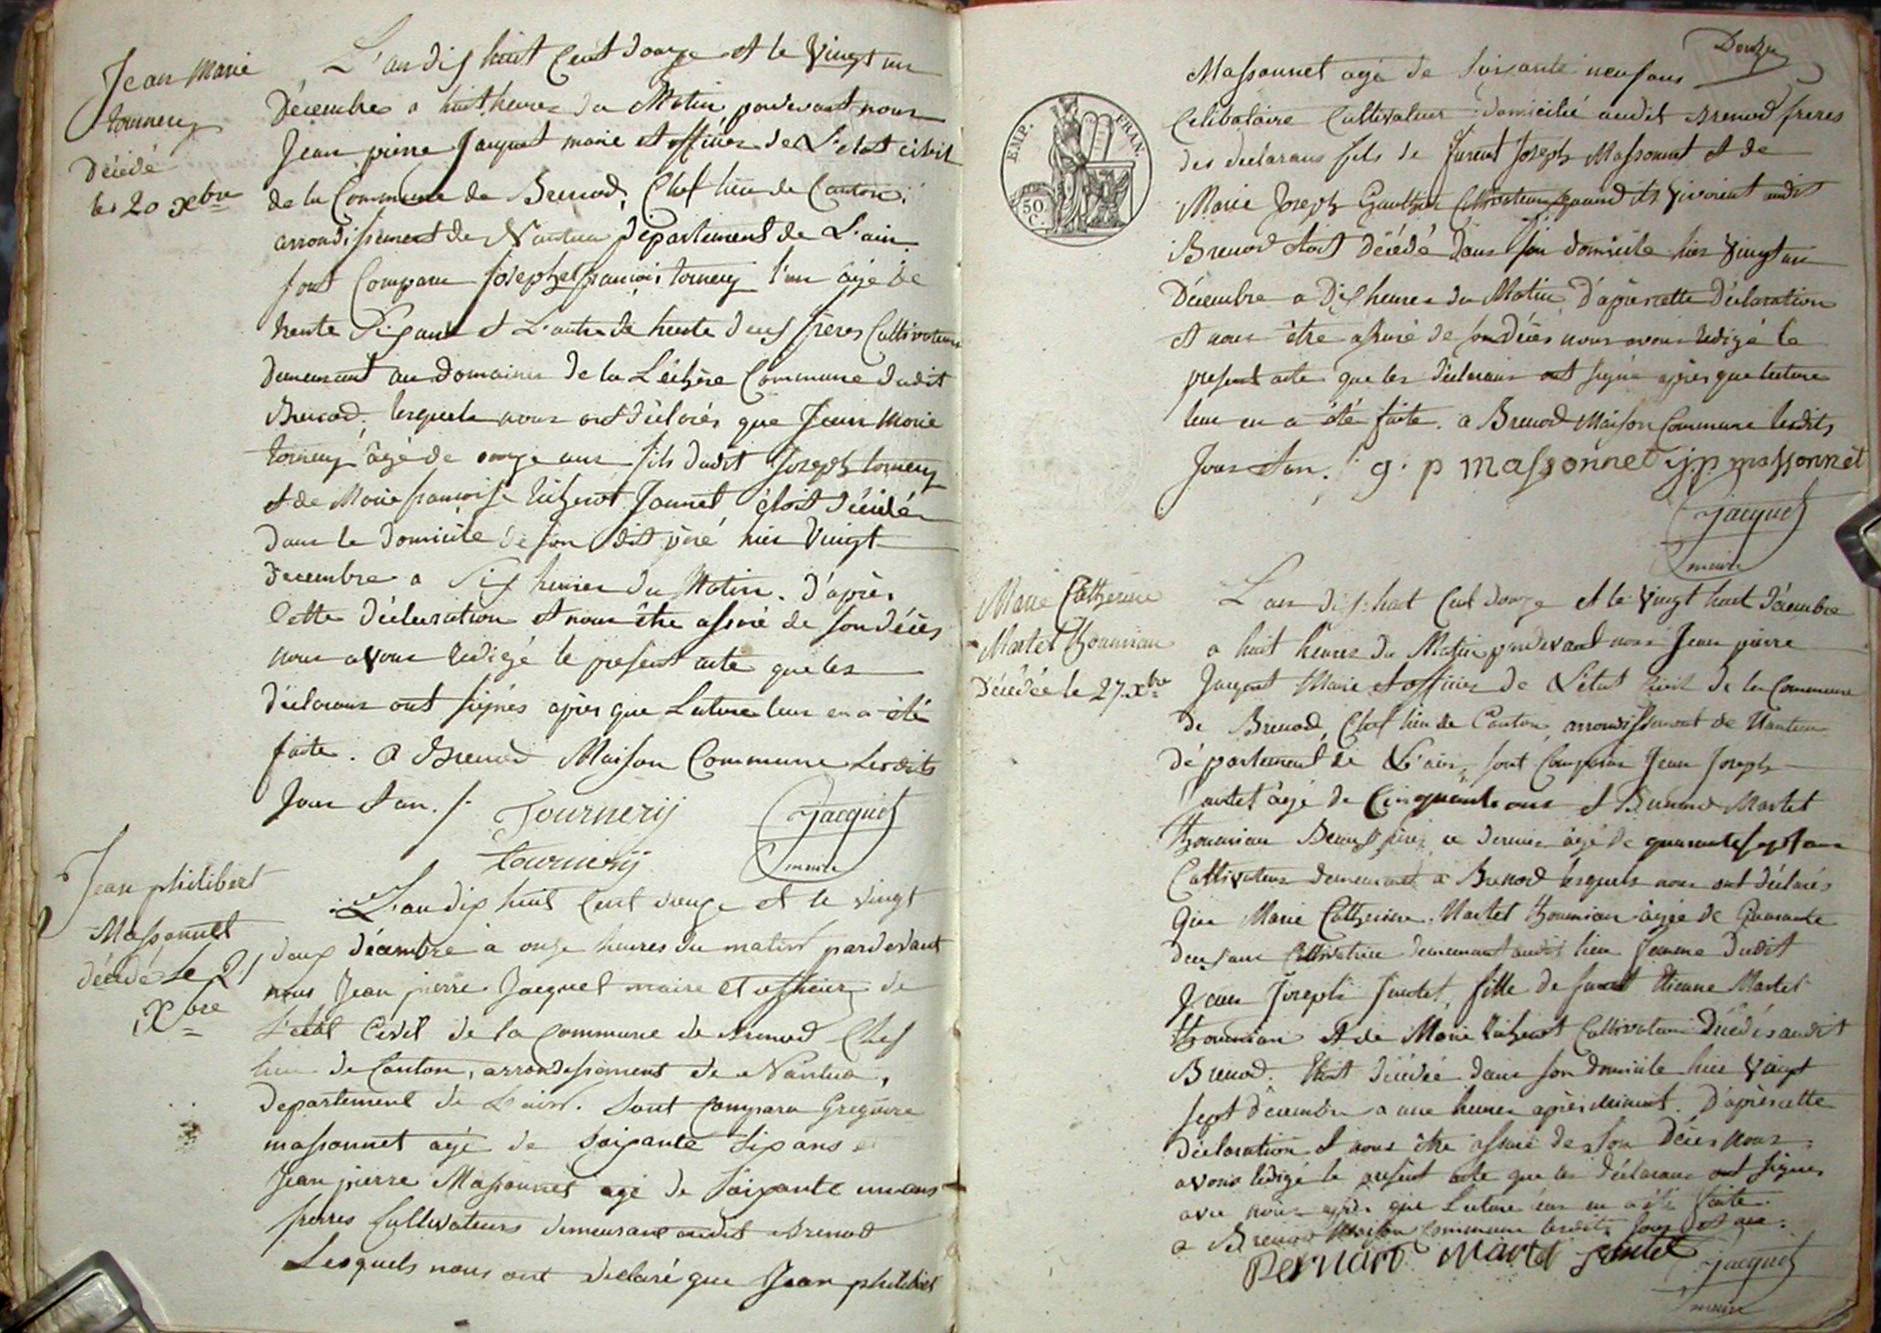 Jean Marie
tournery
Décédé
les 20 xbre
L'an dix huit Cent douze et le Vingt un
Décembre a huit heures du Matin pardevant nous
Jean pierre Jacquet maire et officier de L'etat civil
de la Commune de Brenod, Chef lieu de Canton,
arrondissement de Nantua Département de L'ain.
sont Comparu Joseph et françois tournery l'un agé de
trente Six ans et L'autre de trente deux freres Cultivateurs
Demeurant au domaine de la Léchère Commune dudit
Brenod, lesquels nous ont déclarés que Jean Marie
tournery âgé de onze ans fils dudit Joseph tournery
et de Marie françoise Jannet étoit décédé
Dans le Domicile de son dit père hier Vingt
Décembre a Six heures du Matin. D'après
Cette Déclaration et nous être assuré de son décès
nous avons rédigé le present acte que les
déclarans ont signés après que Lecture leur en a été
faite. A Brenod Maison Commune Lesdits
Jour et an ./.
Tournerÿ
Jacquet
tournerÿ
maire
Jean philibert
Massonnet
décédé Le 21
Xbre
L'an dix huit Cent douze et le vingt
deux décembre à onze heures du matin pardevant
nous Jean pierre Jacquet maire et officier de
l'etat Civil de la Commune de Brenod Chef
lieu de Canton, arrondissement de Nantua,
Departement de L'ain. Sont Comparu Gregoire
massonnet agé de Soixante Six ans et
Jean pierre Massonnet agé de Soixante un ans
freres Cultivateurs demeurans audit Brenod
Lesquels nous ont déclaré que Jean philibert
Douze
Massonnet agé de Soixante neuf ans
Celibataire Cultivateur domicilié audit Brenod freres
EMP. FRAN.
50 C.
des declarans fils de furent Joseph Massonnet et de
Marie Joseph Gauthier Cultivateurs quand ils Vivoient audit
Brenod étoit Décédé dans son domicile hier Vingt un
Décembre a Dix heures du Matin, D'après cette Déclaration
et nous être assuré de son décès nous avons redigé le
present acte que les déclarans ont signé après que lecture
leur en a été faite. a Brenod Maison Commune lesdits
Jour et an.
g. p massonnet jp massonnet
Jacquet
maire
Marie Catherine
Martel
Décédée le 27 xbre
L'an dix huit Cent douze et le Vingt huit Décembre
a huit heures du Matin pardevant nous Jean pierre
Jacquet Maire et officier de L'état Civil de la Commune
de Brenod, Chef lieu de Canton, arrondissement de Nantua
département de L'ain, sont Comparu Jean Joseph
âgé de Cinquante ans et Bernard Martel
Beau frère, ce dernier âgé de quarante sept ans
Cultivateurs demeurant a Brenod lesquels nous ont déclarés
Que Marie Catherine Martel âgée de Quarante
deux ans Cultivatrice demeurant audit lieu femme dudit
Jean Joseph fille de furent Etienne Martel
et de Marie Cultivateurs Décédés audit
Brenod. étoit décédée dans son domicile hier Vingt
sept Décembre a une heure après minuit. D'après cette
Déclaration et nous être assuré de Son Décès nous
avons rédigé le présent acte que les déclarans ont signés
avec nous après que Lecture leur en a été faite.
a Brenod Maison Commune lesdits Jour et an.
Bernard Martel
Jacquet
maire